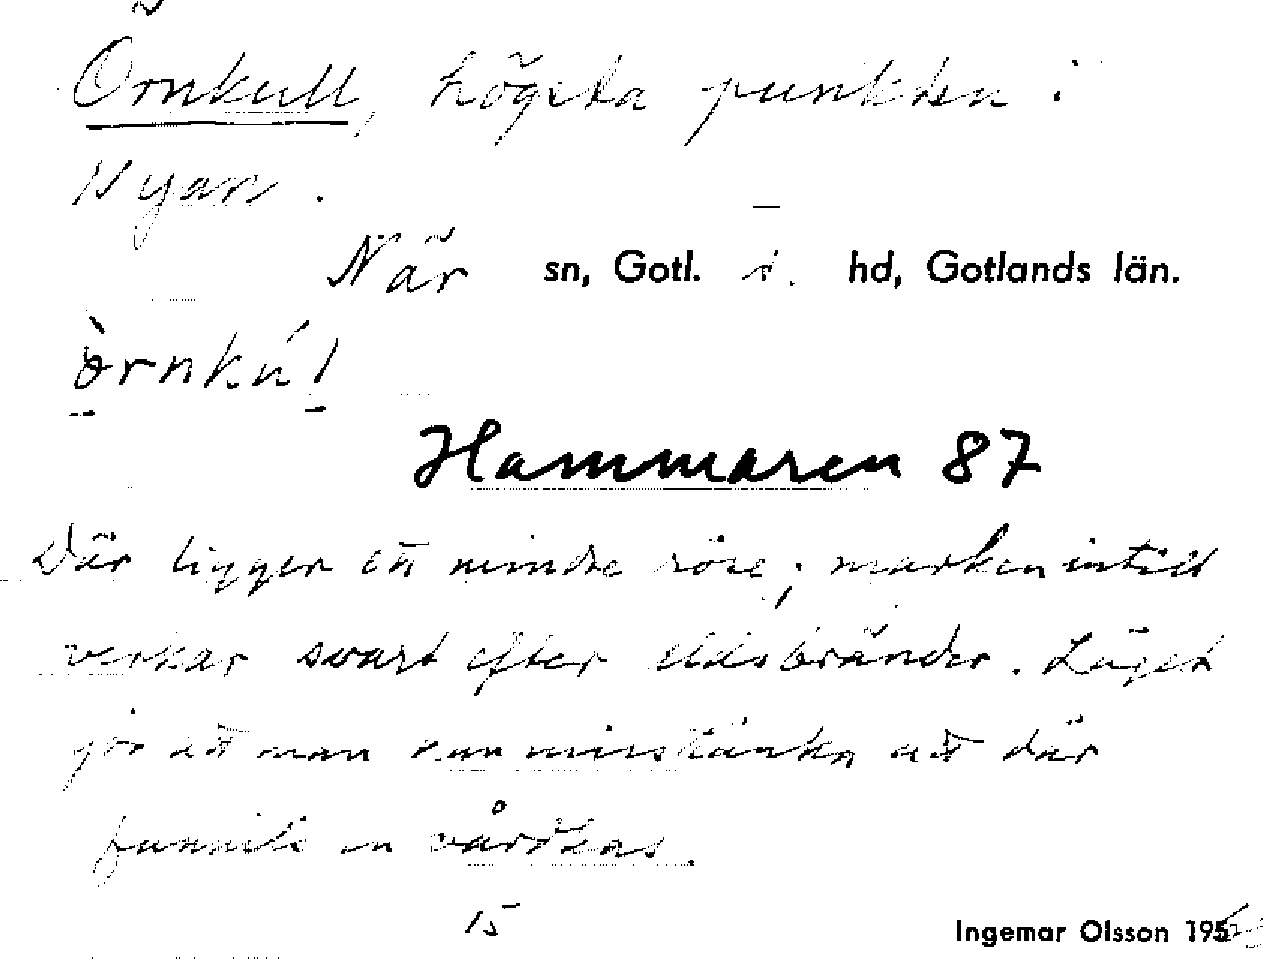 Örnkull, högsta punkten i
Nyan.
När sn, Gotl. s. hd, Gotlands län.
òrnkú l
Hammaren 87
Där ligger ett mindre röse; marken intill
verkar svart efter eldsbränder. Läget
gör att man kan misstänka att där
funnits en vårdkas.
15
Ingemar Olsson 195